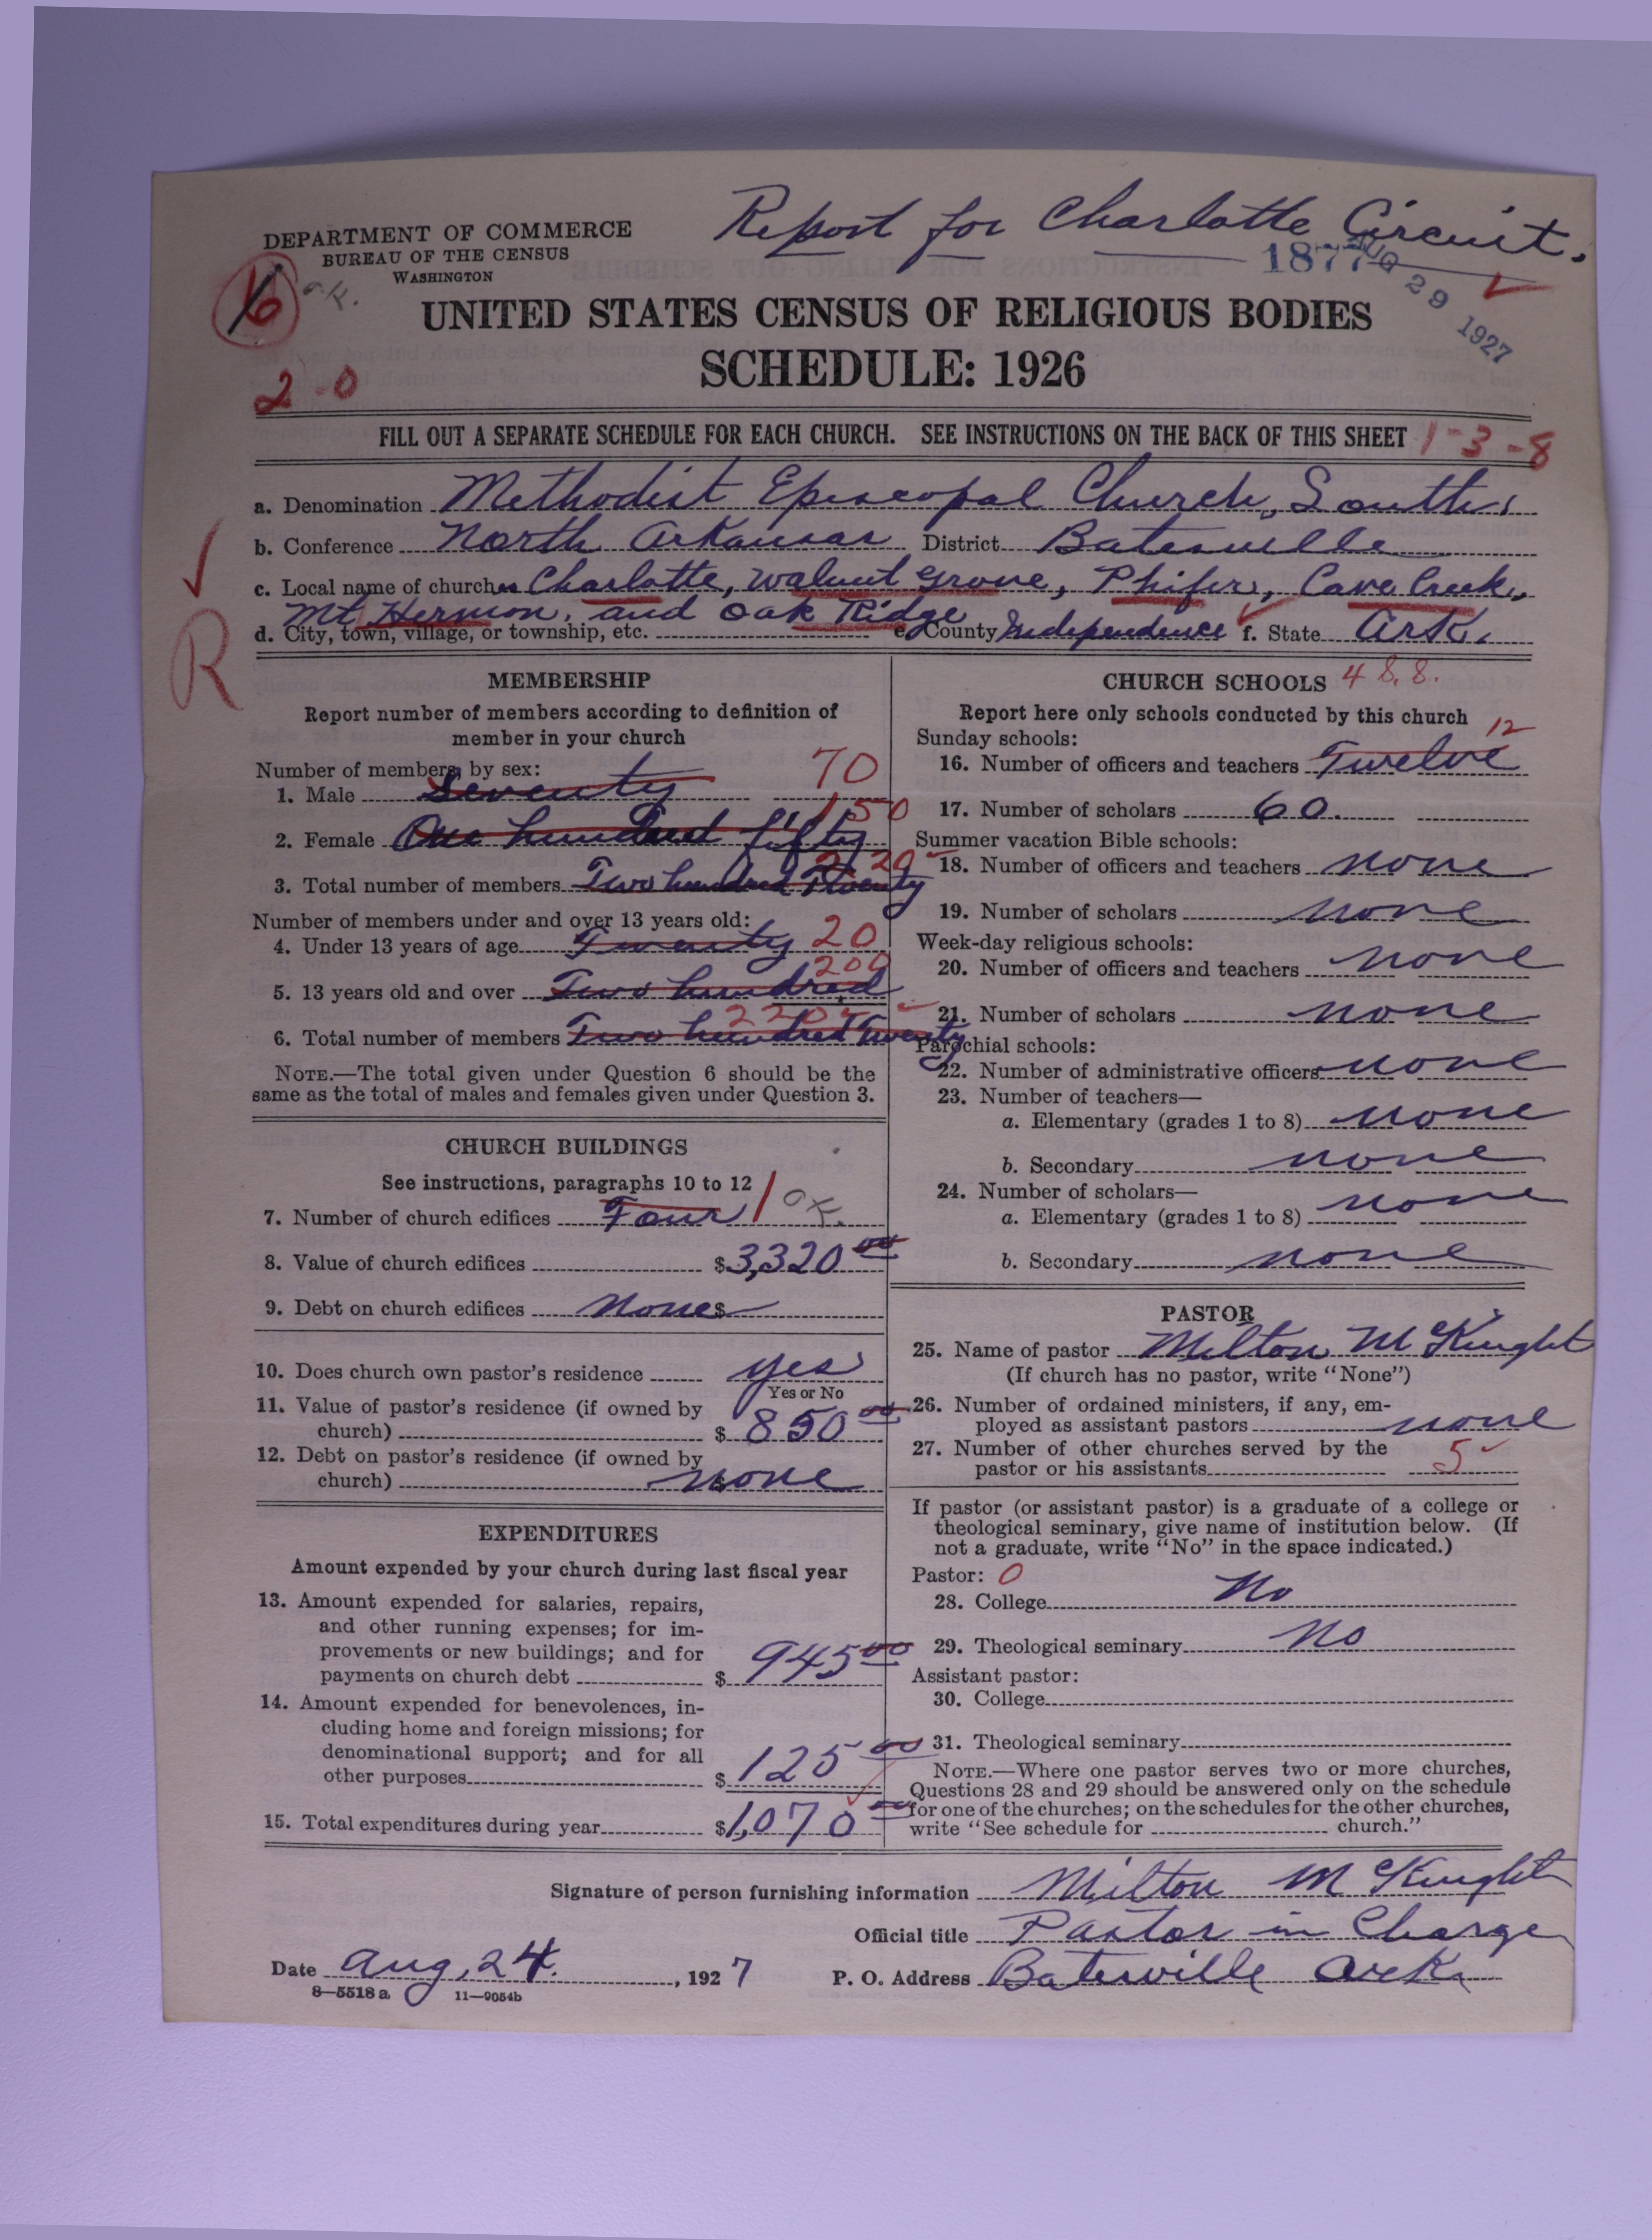 Report for Charlotte Circuit.
DEPARTMENT OF COMMERCE
BUREAU OF THE CENSUS
WASHINGTON
1877
AUG 29 1927
16
UNITED STATES CENSUS OF RELIGIOUS BODIES
SCHEDULE: 1926
2-0
FILL OUT A SEPARATE SCHEDULE FOR EACH CHURCH. SEE INSTRUCTIONS ON THE BACK OF THIS SHEET 1-3-8
a. Denomination Methodist Episcopal Church, South,
b. Conference North Arkansas District Batesville
c. Local name of church Charlotte, Walnut Grove, Phifer, Cave Creek,
Mt Hermon, and Oak Ridge
d. City, town, village, or township, etc. e. County Independence f. State Ark.
R
MEMBERSHIP
Report number of members according to definition of
member in your church
Number of members, by sex:
1. Male Seventy 70
2. Female One hundred fifty 150
3. Total number of members Two hundred Twenty 220
Number of members under and over 13 years old:
4. Under 13 years of age Twenty 20
5. 13 years old and over Two hundred 200
6. Total number of members Two hundred Twenty 220
NOTE.—The total given under Question 6 should be the
same as the total of males and females given under Question 3.
CHURCH BUILDINGS
See instructions, paragraphs 10 to 12
7. Number of church edifices Four 1 OK.
8. Value of church edifices $3,320 00
9. Debt on church edifices None $
10. Does church own pastor's residence yes
Yes or No
11. Value of pastor's residence (if owned by
church) $ 850 00
12. Debt on pastor's residence (if owned by
church) $ none
EXPENDITURES
Amount expended by your church during last fiscal year
13. Amount expended for salaries, repairs,
and other running expenses; for im-
provements or new buildings; and for
payments on church debt $ 945 00
14. Amount expended for benevolences, in-
cluding home and foreign missions; for
denominational support; and for all
other purposes $ 125 00
15. Total expenditures during year $1,070 00
CHURCH SCHOOLS
Report here only schools conducted by this church
Sunday schools:
16. Number of officers and teachers Twelve 12
17. Number of scholars 60.
Summer vacation Bible schools:
18. Number of officers and teachers none
19. Number of scholars none
Week-day religious schools:
20. Number of officers and teachers none
21. Number of scholars none
Parochial schools:
22. Number of administrative officers none
23. Number of teachers—
a. Elementary (grades 1 to 8) none
b. Secondary none
24. Number of scholars—
a. Elementary (grades 1 to 8) none
b. Secondary none
PASTOR
25. Name of pastor Milton McKnight
(If church has no pastor, write "None")
26. Number of ordained ministers, if any, em-
ployed as assistant pastors none
27. Number of other churches served by the
pastor or his assistants 5
If pastor (or assistant pastor) is a graduate of a college or
theological seminary, give name of institution below. (If
not a graduate, write "No" in the space indicated.)
Pastor: 0
28. College No
29. Theological seminary No
Assistant pastor:
30. College
31. Theological seminary
NOTE.—Where one pastor serves two or more churches,
Questions 28 and 29 should be answered only on the schedule
for one of the churches; on the schedules for the other churches,
write "See schedule for church."
Signature of person furnishing information Milton McKnight
Official title Pastor in Charge
Date Aug. 24. , 1927 P. O. Address Batesville Ark.
8—5518a 11—9054b